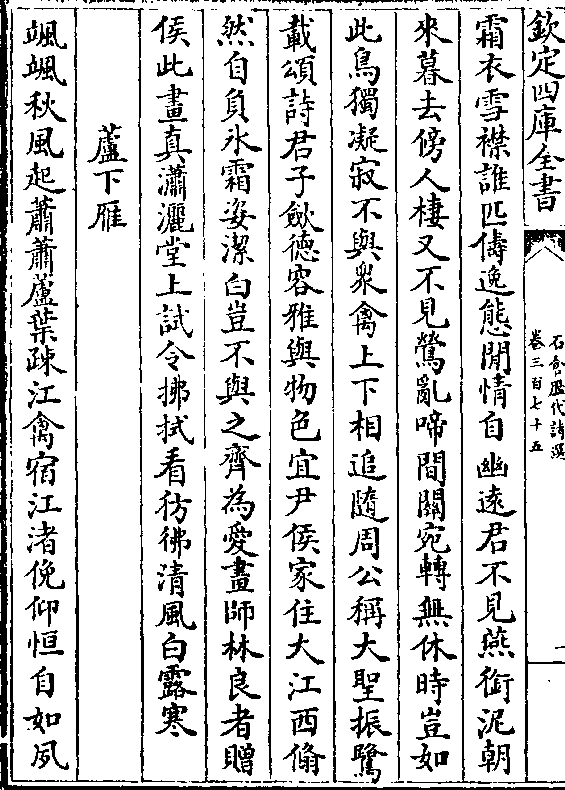 欽定四庫全書
石倉歷代詩選
卷三百七十五
二
霜衣雪襟誰匹儔逸態閒情自幽遠君不見燕銜泥朝
來暮去傍人棲又不見鶯亂啼間關宛轉無休時豈如
此鳥獨凝寂不與衆禽上下相追隨周公稱大聖振鷺
載頌詩君子斂德容雅與物色宜尹侯家住大江西翛
然自負氷霜姿潔白豈不與之齊為愛畫師林良者贈
侯此畫真瀟灑堂上試令拂拭看彷彿清風白露寒
蘆下雁
颯颯秋風起蕭蕭蘆葉疎江禽宿江渚俛仰恒自如夙